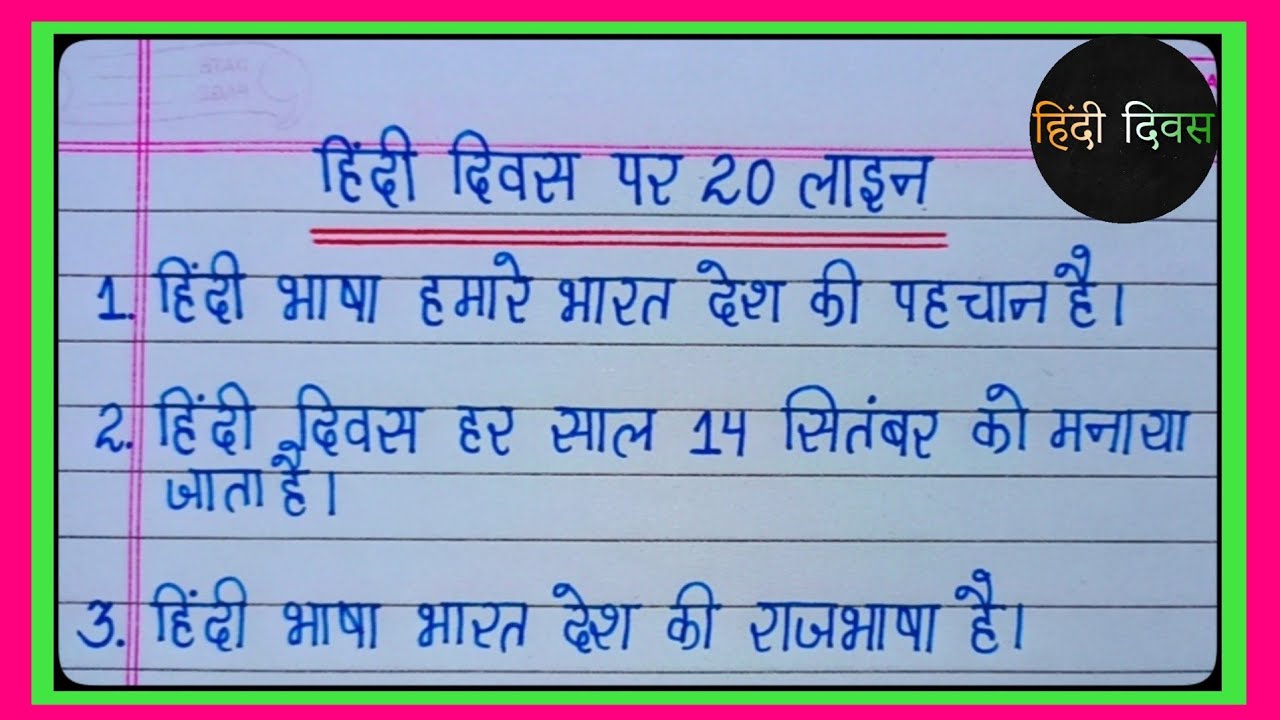 हिंदी दिवस
हिंदी दिवस पर 20 लाइन
1. हिंदी भाषा हमारे भारत देश की पहचान है।
2. हिंदी दिवस हर साल 14 सितंबर को मनाया
जाता है।
3. हिंदी भाषा भारत देश की राजभाषा है।